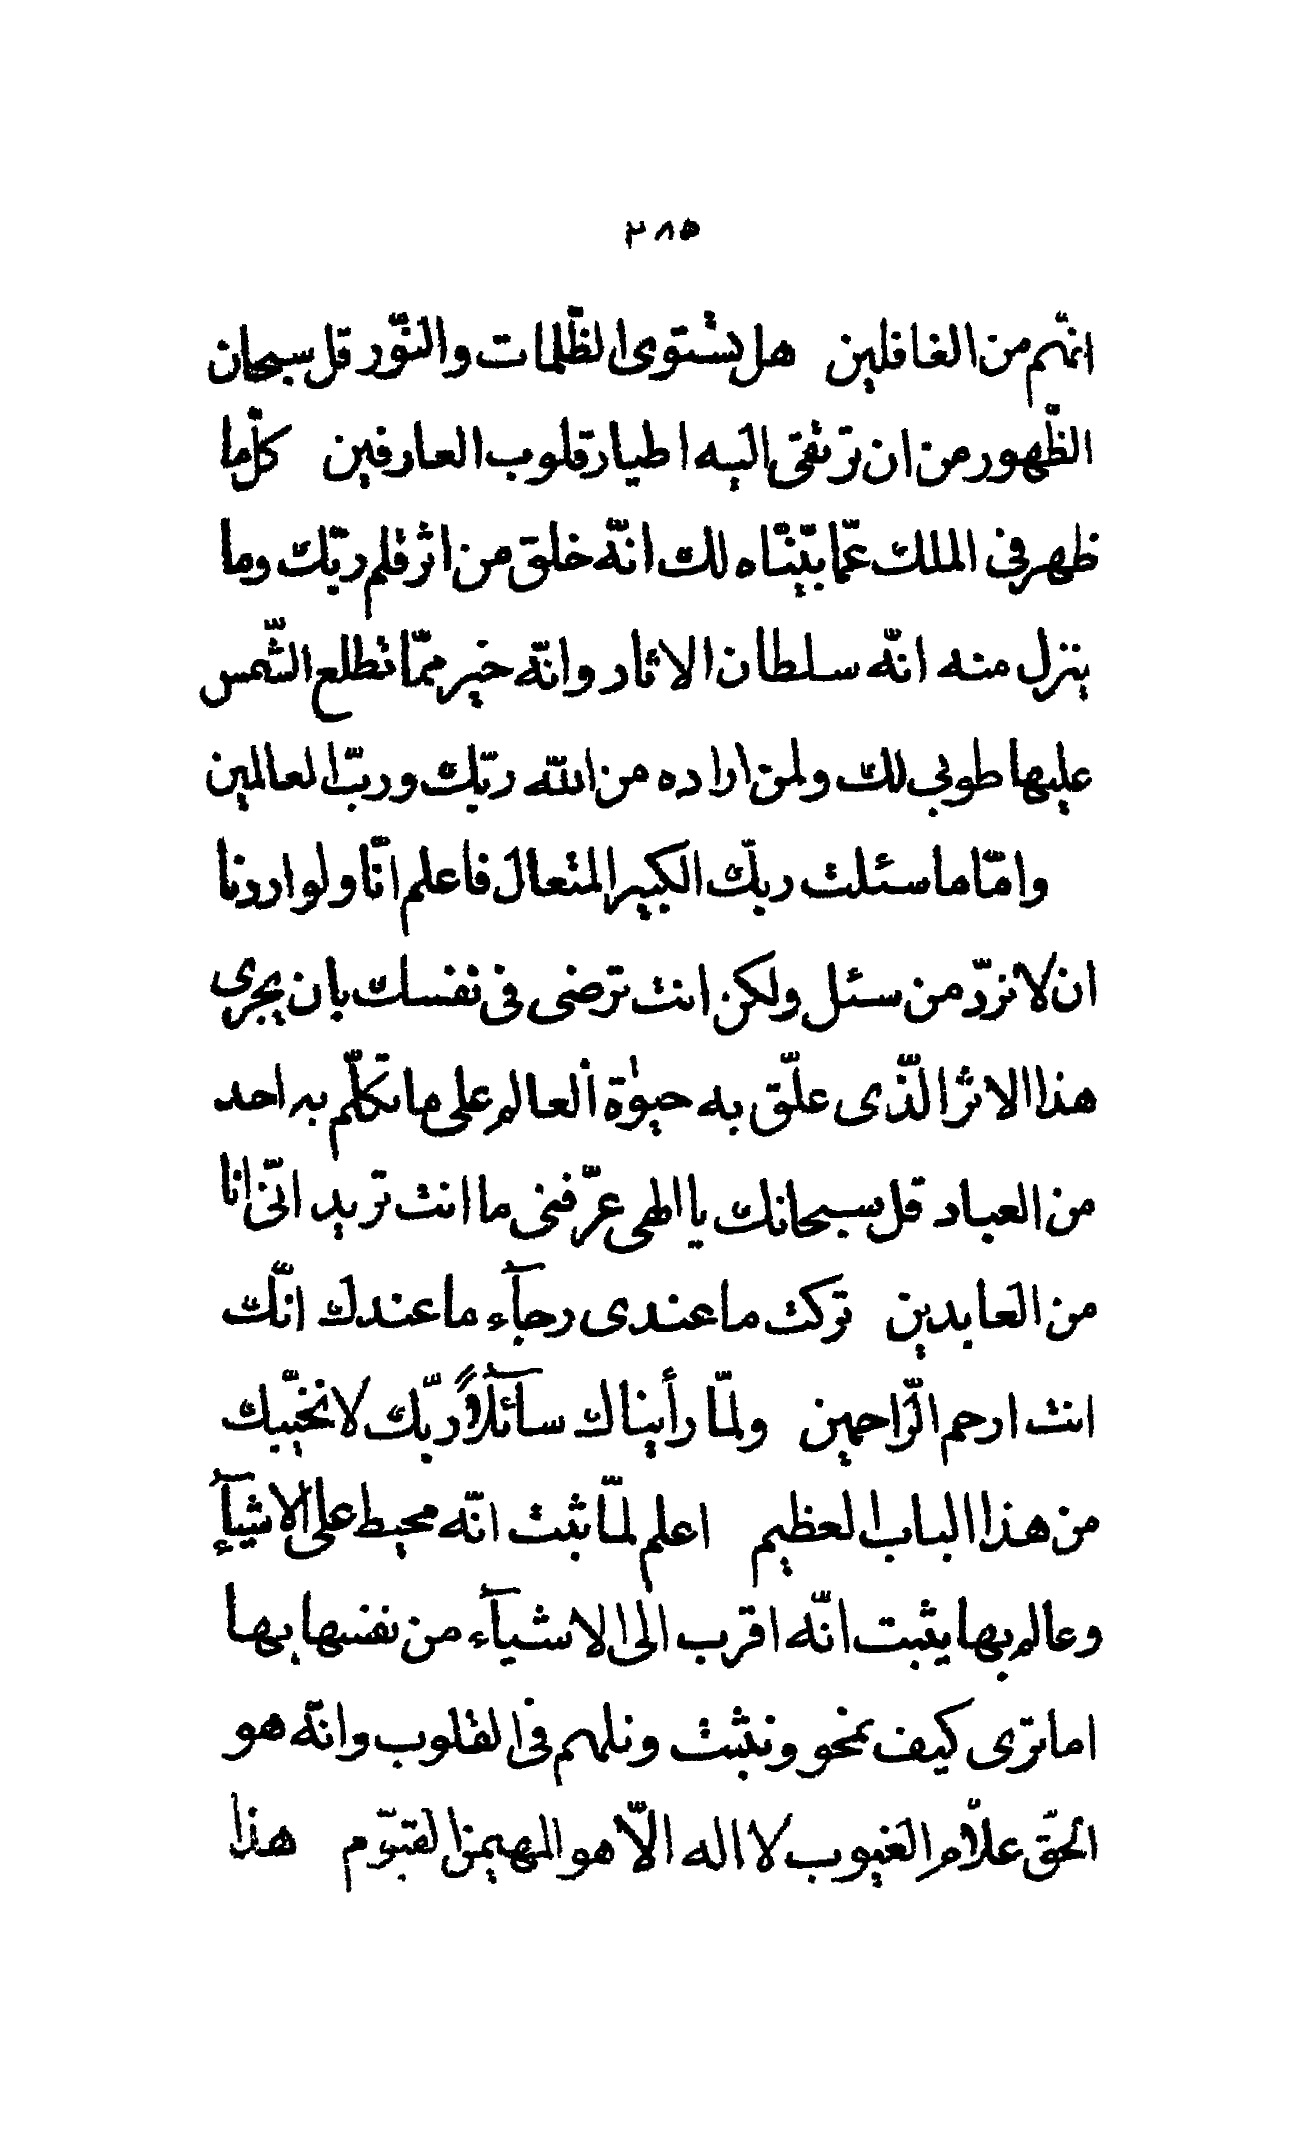 ٢٨٥
انّهم من الغافلين هل يستوى الظّلمات والنّور قل سبحان
الظّهور من ان ترتقى اليه اطيار قلوب العارفين كلّ ما
ظهر فى الملك عمّا بيّنّاه لك انّه خلق من اثر قلم ربّك وما
ينزل منه انّه سلطان الاثار وانّه خير ممّا تطلع الشّمس
عليها طوبى لك ولمن اراده من الله ربّك وربّ العالمين
وامّا ما سئلت ربّك الكبير المتعال فاعلم انّا ولو اردنا
ان لا نردّ من سئل ولكن انت ترضى فى نفسك بان يجرى
هذا الاثر الّذى علّق به حيوٰة العالم على ما تكلّم به احد
من العباد قل سبحانك يا الهى عرّفنى ما انت تريد انّى انا
من العابدين تركت ما عندى رجآء ما عندك انّك
انت ارحم الرّاحمين ولمّا رأيناك سآئلاً ربّك لا نخيّبك
من هذا الباب العظيم اعلم لمّا ثبت انّه محيط على الاشيآء
وعالم بها يثبت انّه اقرب الى الاشيآء من نفسها بها
اما ترى كيف نمحو ونثبت ونلهم فى القلوب وانّه هو
الحقّ علّام الغيوب لا اله الّا هو المهيمن القيّوم هذا